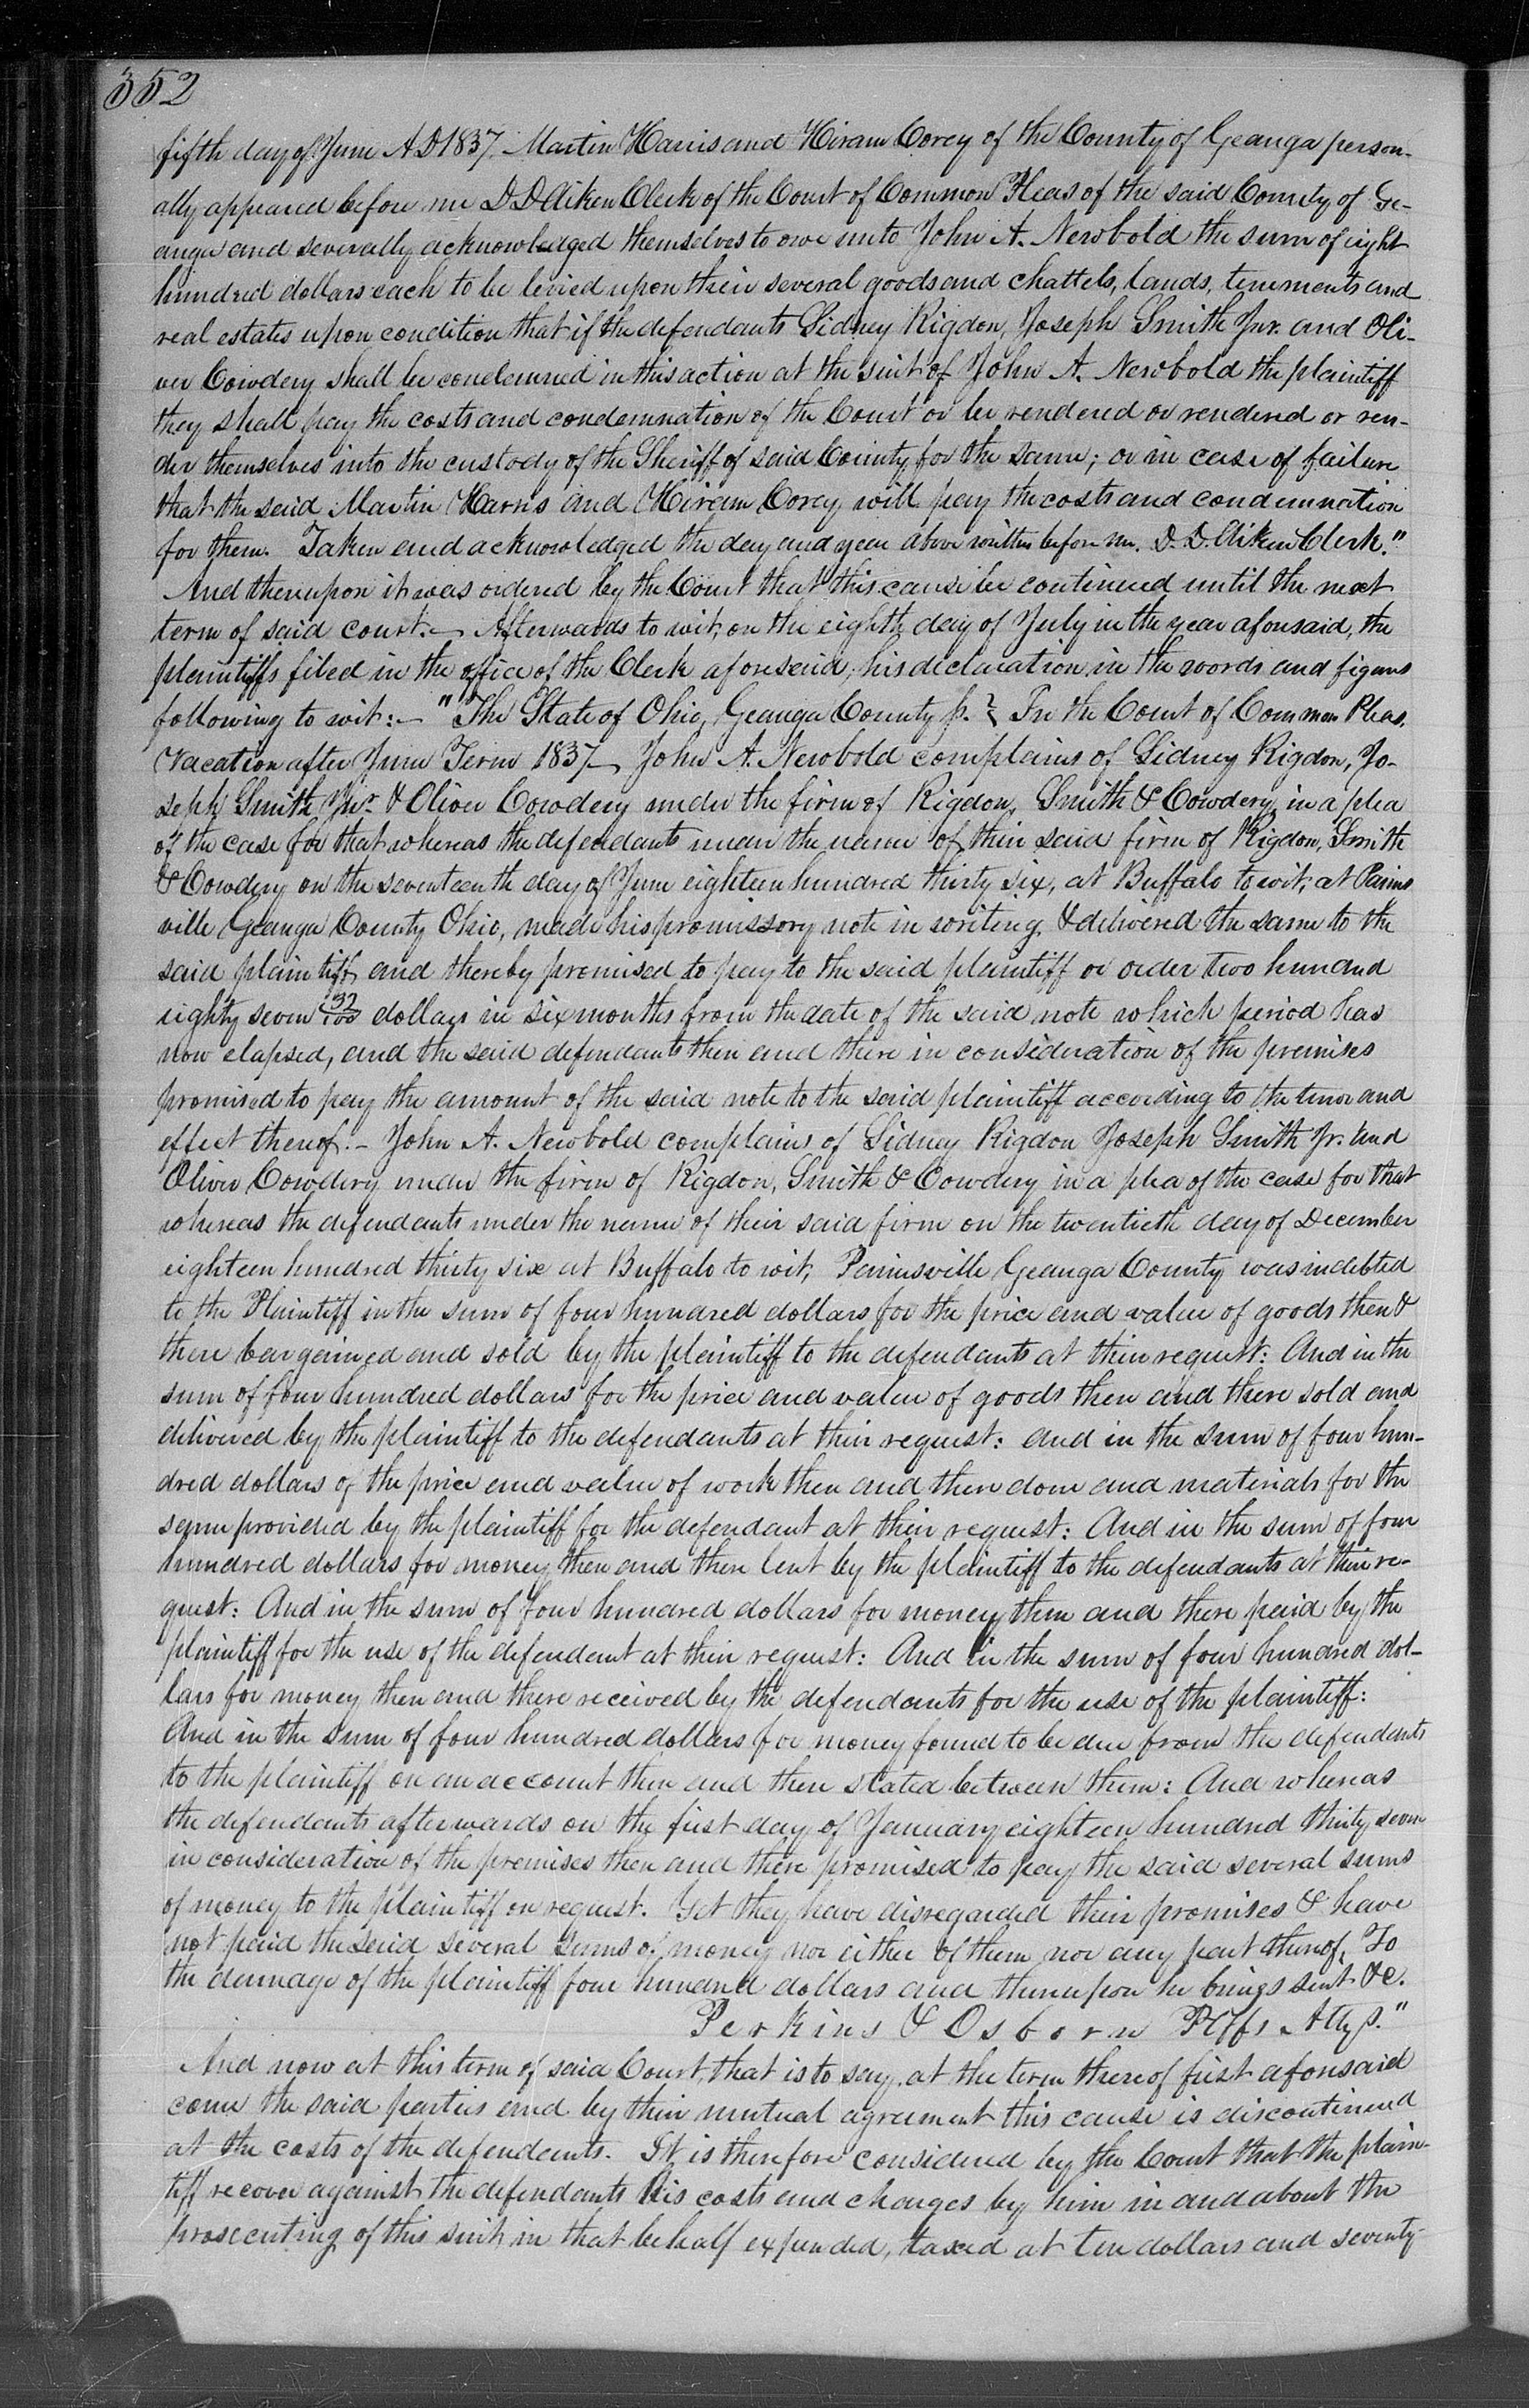 352
fifth day of June A D 1837. Martin Harris and Hiram Corey of the County of Geauga person-
ally appeared before me D D Aiken Clerk of the Court of Common Pleas of the said County of Ge-
auga and severally acknowledged themselves to owe unto John A. Newbold the sum of eight
hundred dollars each to be levied upon their several goods and chattels, lands, tenements and
real estates upon condition that if the defendants Sidney Rigdon, Joseph Smith Jnr. and Oli-
ver Cowdery shall be condemned in this action at the suit of John A. Newbold the plaintiff
they shall pay the costs and condemnation of the Court or be rendered or rendered or ren-
der themselves into the custody of the Sheriff of said County for the same; or in case of failure
that the said Martin Harris and Hiram Corey will pay the costs and condemnation
for them. Taken and acknowledged the day and year above written before me. D. D. Aiken Clerk."
And thereupon it was ordered by the Court that this cause be continued until the next
term of said court. – Afterwards to wit, on the eighth day of July in the year aforesaid, the
plaintiffs filed in the office of the Clerk aforesaid, his declaration in the words and figures
following to wit: – "The State of Ohio, Geauga County ss. } In the Court of Common Pleas,
Vacation after June Term 1837 – John A. Newbold complains of Sidney Rigdon, Jo-
seph Smith Jnr. & Oliver Cowdery under the firm of Rigdon, Smith & Cowdery in a plea
of the case for that whereas the defendants under the name of their said firm of Rigdon, Smith
& Cowdery on the seventeenth day of June eighteen hundred thirty six, at Buffalo to wit, at Pains
ville Geauga County Ohio, made his promissory note in writing, & delivered the same to the
said plaintiff, and thereby promised to pay to the said plaintiff or order two hundred
eighty seven 32/100 dollars in six months from the date of the said note which period has
now elapsed, and the said defendants then and there in consideration of the premises
promised to pay the amount of the said note to the said plaintiff according to the tenor and
effect thereof. – John A. Newbold complains of Sidney Rigdon Joseph Smith Jr. and
Oliver Cowdery under the firm of Rigdon, Smith & Cowdery in a plea of the case for that
whereas the defendants under the name of their said firm on the twentieth day of December
eighteen hundred thirty six at Buffalo to wit, Painesville Geauga County was indebted
to the Plaintiff in the sum of four hundred dollars for the price and value of goods then &
there bargained and sold by the plaintiff to the defendants at their request: And in the
sum of four hundred dollars for the price and value of goods then and there sold and
delivered by the plaintiff to the defendants at their request: and in the sum of four hun-
dred dollars of the price and value of work then and there done and materials for the
same provided by the plaintiff for the defendant at their request: And in the sum of four
hundred dollars for money then and there lent by the plaintiff to the defendants at their re-
quest: And in the sum of four hundred dollars for money then and there paid by the
plaintiff for the use of the defendant at their request: And in the sum of four hundred dol-
lars for money then and there received by the defendants for the use of the plaintiff:
And in the sum of four hundred dollars for money found to be due from the defendants
to the plaintiff on an account then and there stated between them: And whereas
the defendants afterwards on the first day of January eighteen hundred thirty seven
in consideration of the premises then and there promised to pay the said several sums
of money to the plaintiff on request. Yet they have disregarded their promises & have
not paid the said several sums of money nor either of them nor any part thereof, To
the damage of the plaintiff four hundred dollars and thereupon he brings suit &c.
Perkins & Osborn Pltffs Attys."
And now at this term of said Court, that is to say, at the term thereof first aforesaid
come the said parties and by their mutual agreement this cause is discontinued
at the costs of the defendants. It is therefore considered by the Court that the plain-
tiff recover against the defendants his costs and charges by him in and about the
prosecuting of this suit in that behalf expended, taxed at ten dollars and seventy-